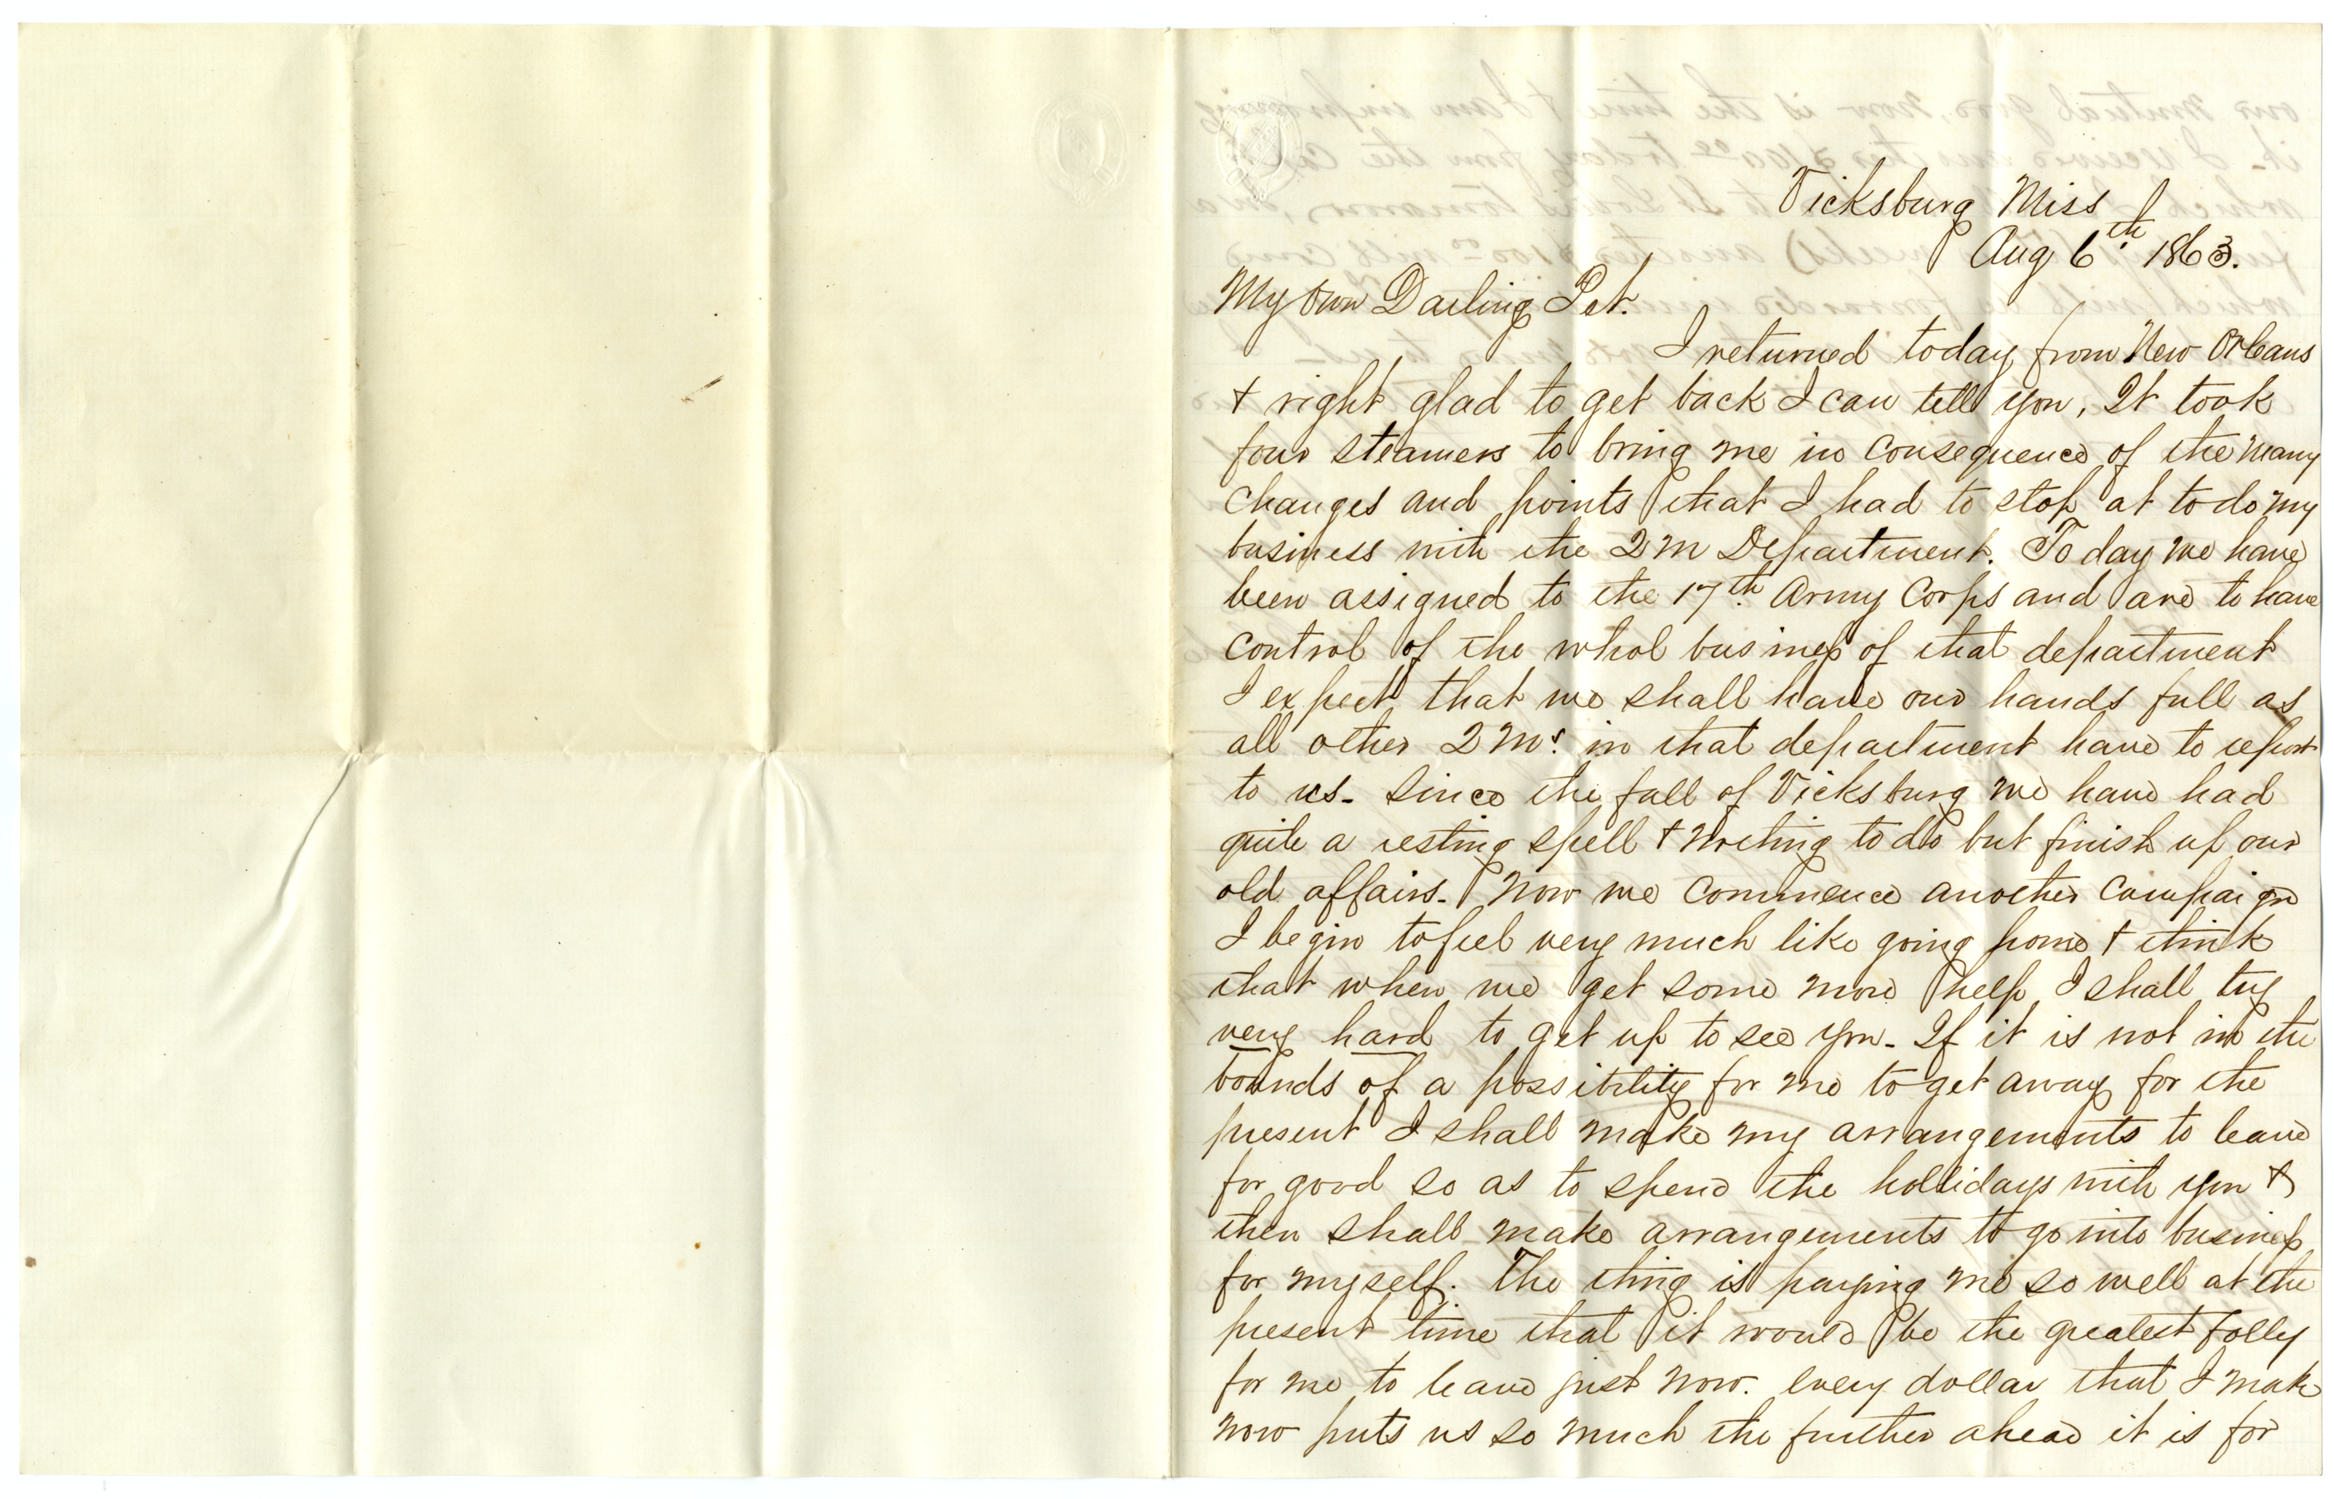 Vicksburg Miss
Aug 6th 1863.
My Own Darling Pet.
I returned today from New Orleans
& right glad to get back I can tell you, It took
four steamers to bring me in consequence of the many
changes and points that I had to stop at to do my
business with the QM Department. Today we have
been assigned to the 17th Army Corps and are to have
control of the whol business of that department
I expect that we shall have our hands full as
all other QMs. in that department have to report
to us - Since the fall of Vicksburg we have had
quite a resting spell & nothing to do but finish up our
old affairs - Now we commence another campaign
I begin to feel very much like going home & think
that when we get some more help I shall try
very hard to get up to see you - If it is not in the
bounds of a possibility for me to get away for the
present I shall make my arrangements to leave
for good so as to spend the hollidays with you &
then shall make arrangements to go into business
for myself. The thing is paying me so well at the
present time that it would be the greatest folly
for me to leave just now. every dollar that I make
now puts us so much the further ahead it is for